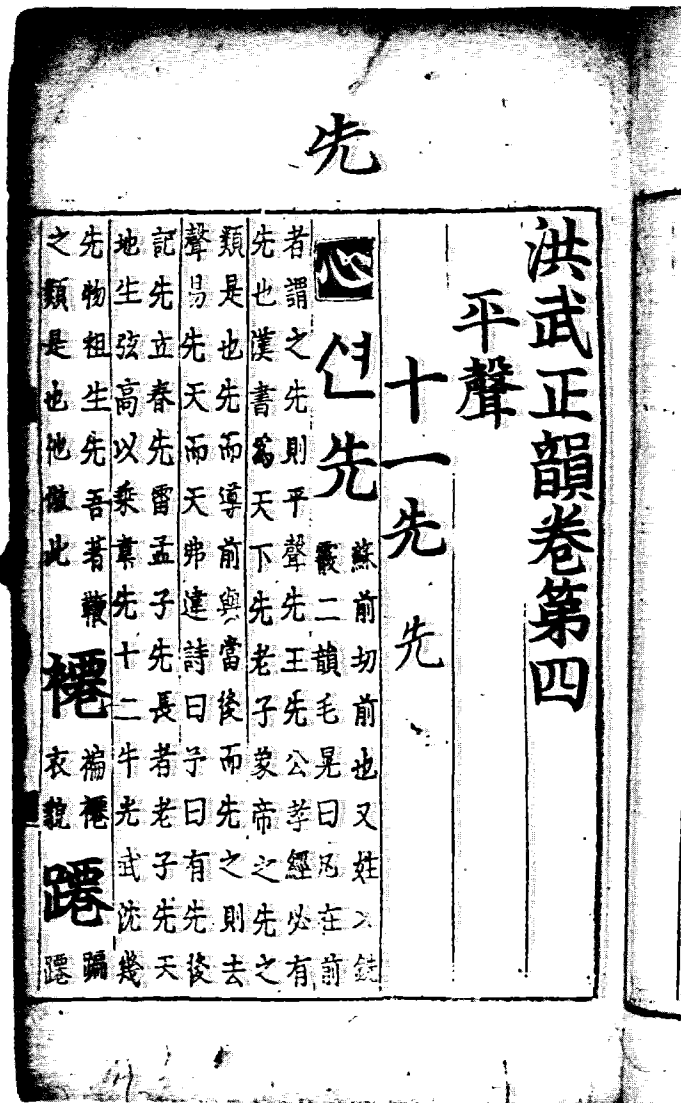 先
洪武正韻卷第四
平聲
十一先 先
心 션 先 蘇前切前也又姓又銑
霰二韻毛晃曰凡在前
者謂之先則平聲先王先公孝經必有
先也漢書為天下先老子象帝之先之
類是也先而導前與當後而先之則去
聲易先天而天弗違詩曰予曰有先後
記先立春先雷孟子先長者老子先天
地生弦高以乘韋先十二牛光武沈幾
先物祖生先吾著鞭
之類是也他倣此
褼 褊褼
衣貌
蹮 蹁
蹮